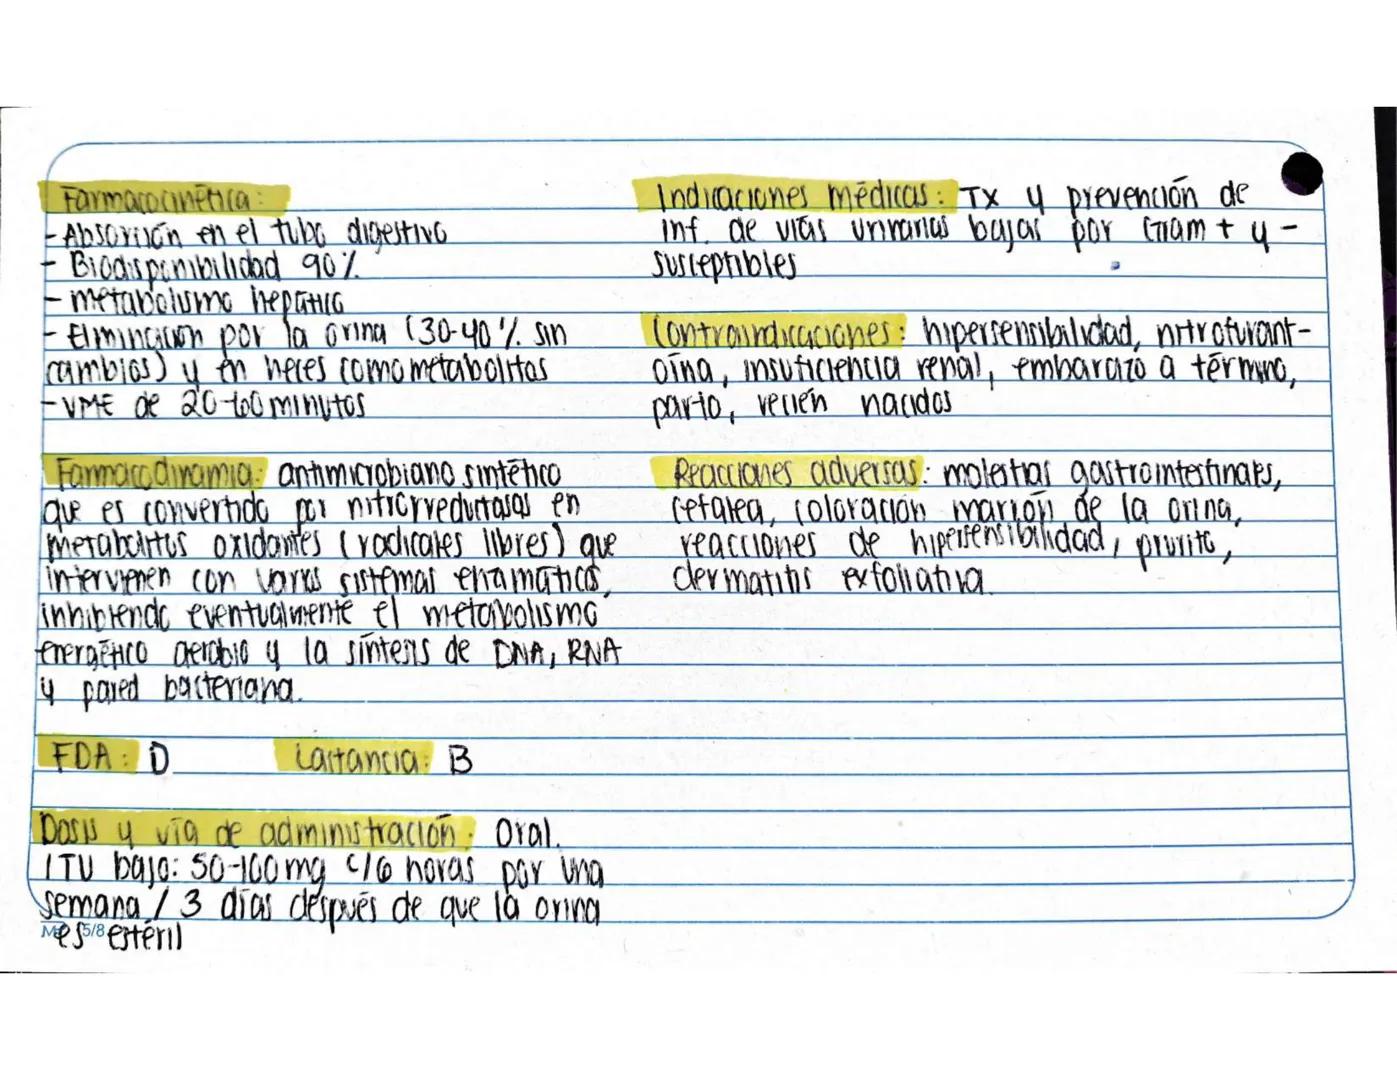 Farmacocinética:
- Absorción en el tubo digestivo
- Biodisponibilidad 90%
- metabolismo hepático
- Eliminación por la orina (30-40% sin
cambios) y en heces como metabolitos
- VME de 20-60 minutos
Farmacodinamia: antimicrobiano sintético
que es convertido por nitrorreductasas en
metabolitos oxidantes (radicales libres) que
intervienen con varios sistemas enzimáticos,
inhibiendo eventualmente el metabolismo
energético aerobio y la síntesis de DNA, RNA
y pared bacteriana.
FDA: D Lactancia: B
Dosis y vía de administración: Oral.
ITU bajo: 50-100 mg c/6 horas por una
semana / 3 días después de que la orina
es estéril
5/8
Indicaciones médicas: TX y prevención de
inf. de vías urinarias bajas por Gram + y -
susceptibles
Contraindicaciones: hipersensibilidad, nitrofurant-
oína, insuficiencia renal, embarazo a término,
parto, recién nacidos
Reacciones adversas: molestias gastrointestinales,
cefalea, coloración marrón de la orina,
reacciones de hipersensibilidad, prurito,
dermatitis exfoliativa.